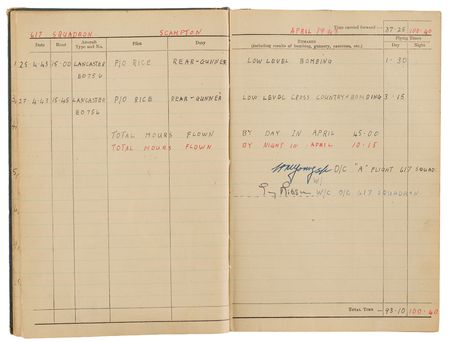 617 SQUADRON SCAMPTON
APRIL 1943 Time carried forward:— 37-25 100-40
Date Hour Aircraft Type and No. Pilot Duty
REMARKS (including results of bombing, gunnery, exercises, etc.) Flying Times
Day Night
25-4-43 15·00 LANCASTER P/O RICE REAR-GUNNER LOW LEVEL BOMBING 1·30
ED756
27-4-43 15·45 LANCASTER P/O RICE REAR-GUNNER LOW LEVEL CROSS COUNTRY+BOMBING 3·15
ED756
TOTAL HOURS FLOWN BY DAY IN APRIL 45·00
TOTAL HOURS FLOWN BY NIGHT IN APRIL 10·15
O/C "A" FLIGHT 617 SQUAD
W/C O/C 617 SQUADRON
TOTAL TIME 100·40